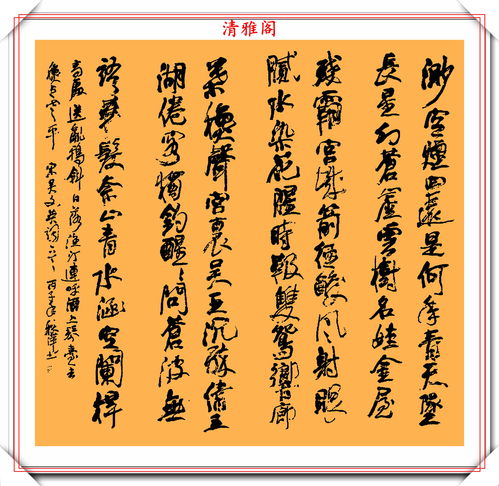 清雅阁
渺空煙四遠是何年青天墜
長星幻蒼崖雲樹名娃金屋
殘霸宮城箭徑酸風射眼
膩水染花腥時靸雙鴛響廊
葉穐聲宮裏吳王沉醉倩五
湖倦客獨釣醒醒問蒼波無
語華髮奈山青水涵空闌桿
高處送亂鴉斜日落漁汀連呼酒上琴臺去
穐與雲平 宋吳文英詞 丙子年